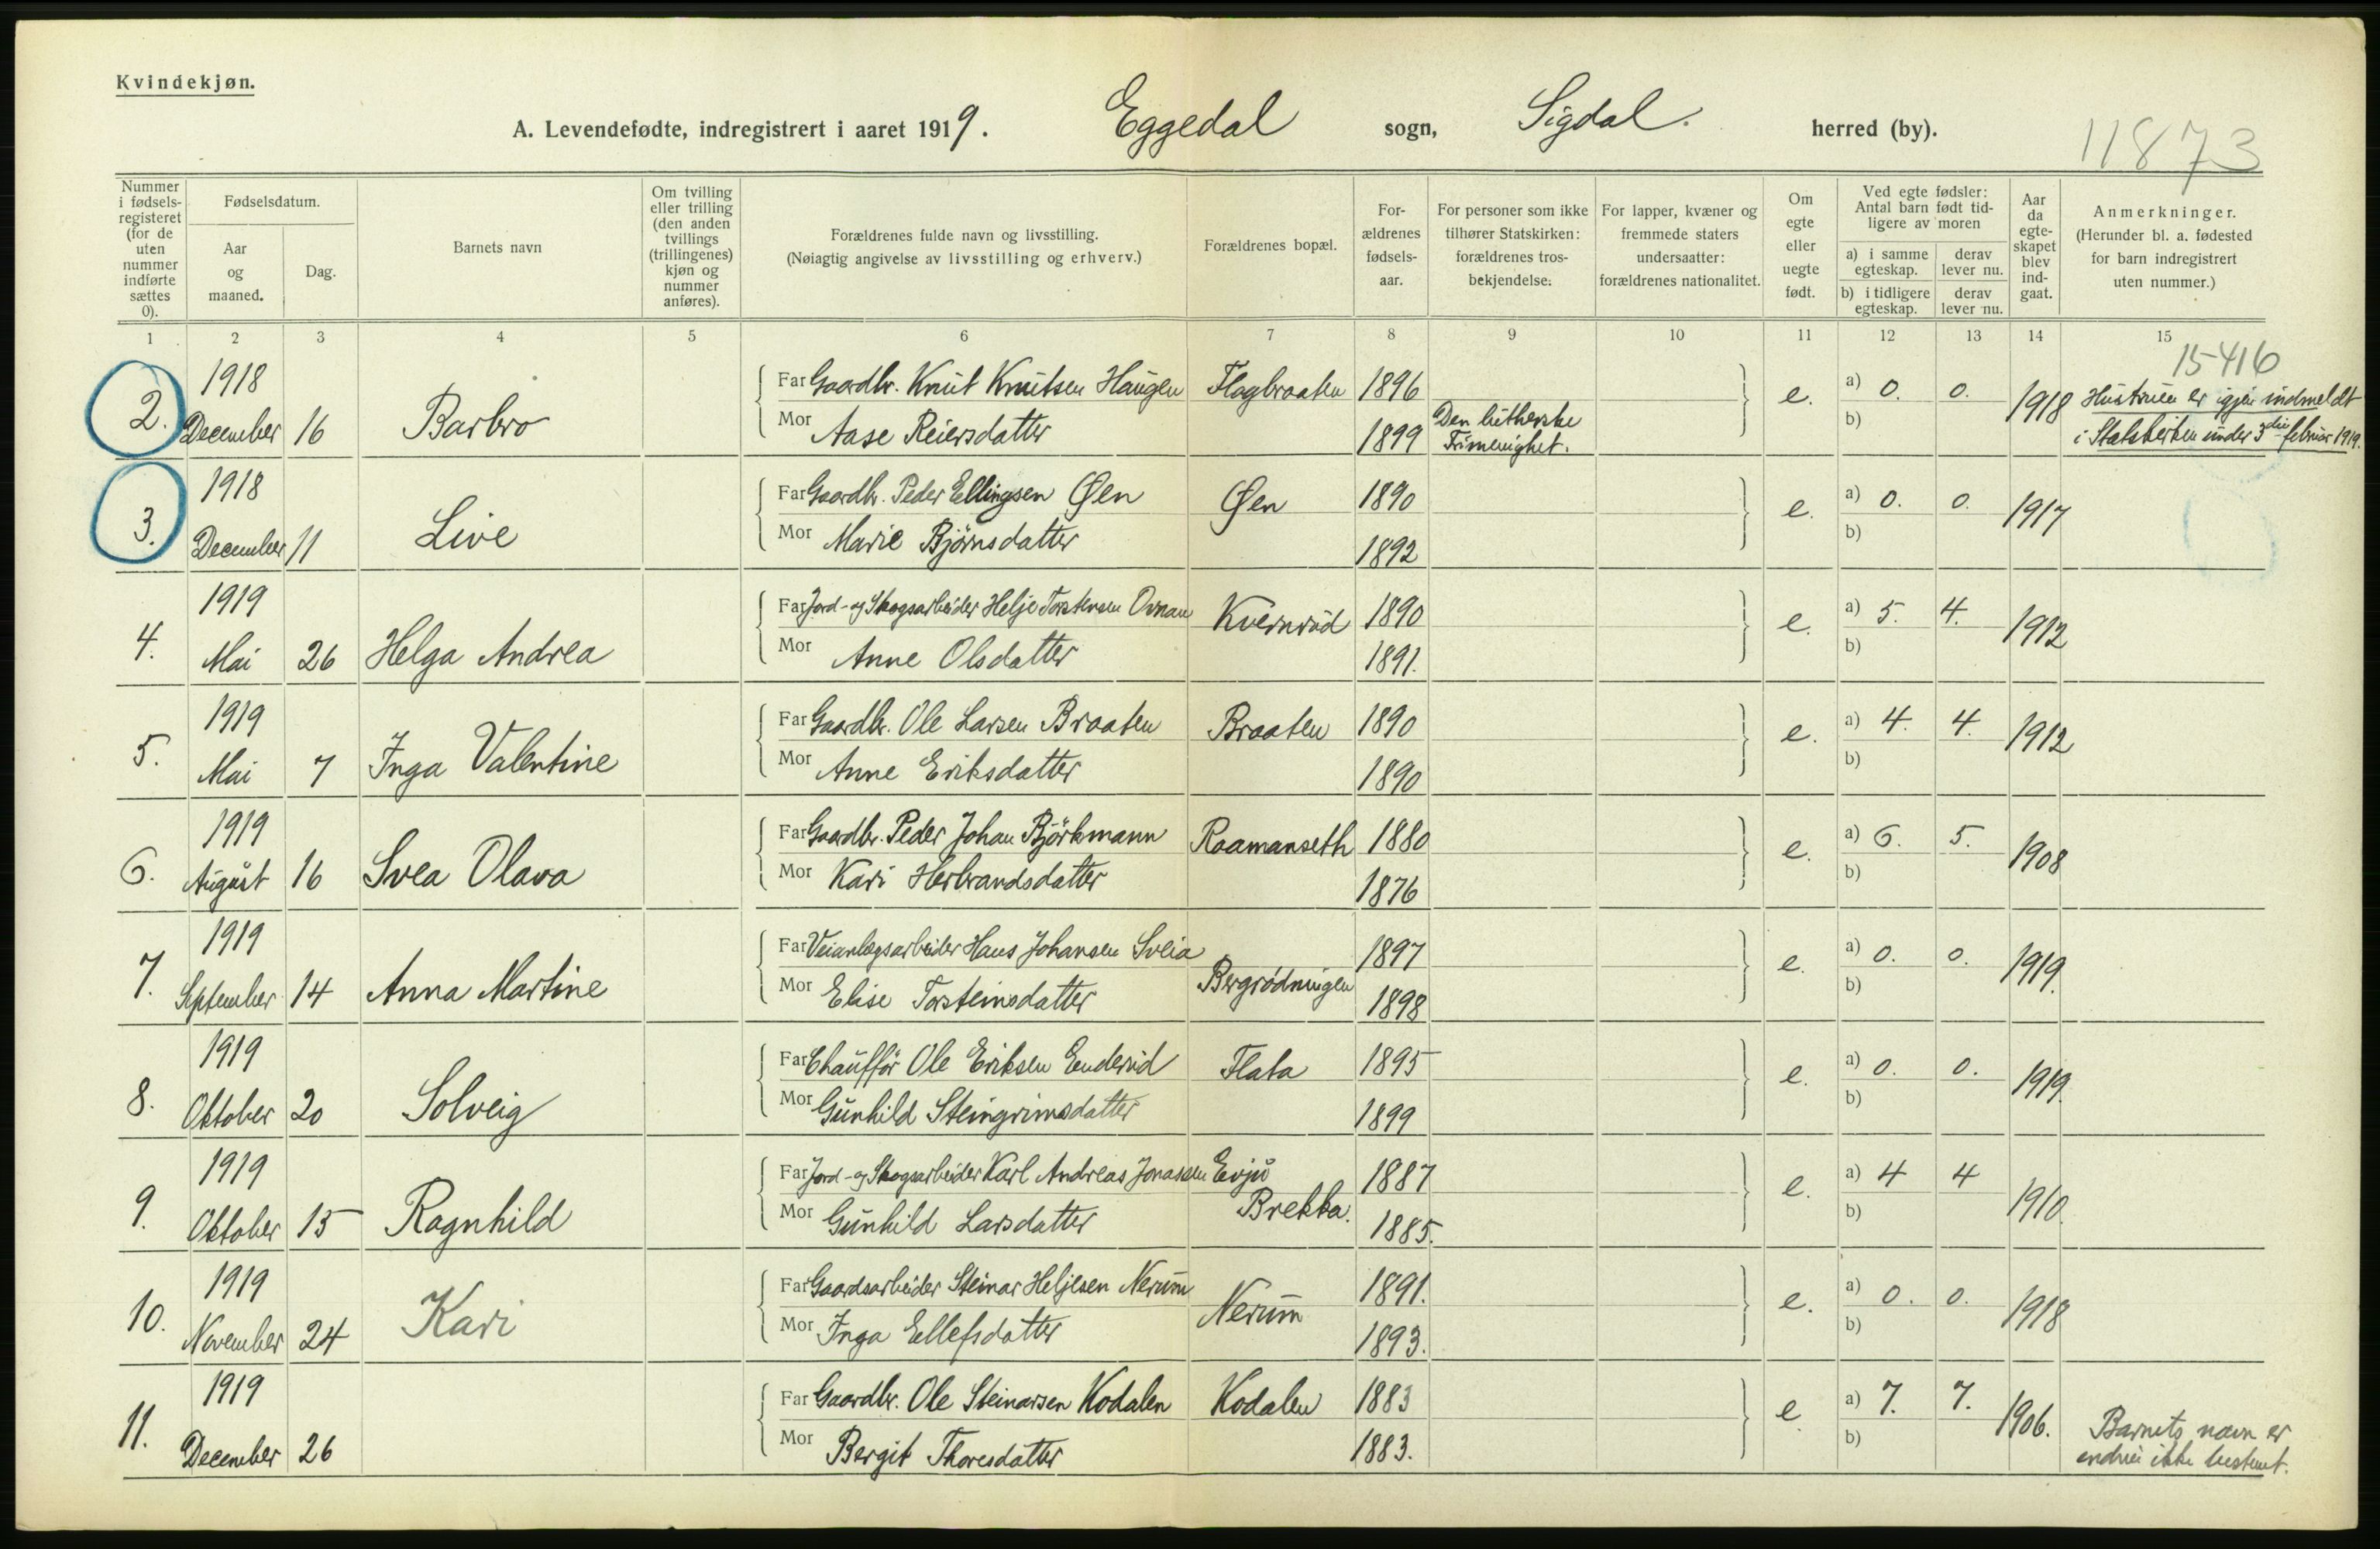 Kvindekjøn.
A. Levendefødte, indregistrert i aaret 1919. Eggedal sogn, Sigdal. herred (by).
11873
Nummer i fødselsregisteret (for de uten nummer indførte sættes 0).
Fødselsdatum.
Aar og maaned.
Dag.
Barnets navn
Om tvilling eller trilling (den anden tvillings (trillingenes) kjøn og nummer anføres).
Forældrenes fulde navn og livsstilling.
(Nøiagtig angivelse av livsstilling og erhverv.)
Forældrenes bopæl.
Forældrenes fødselsaar.
For personer som ikke tilhører Statskirken: forældrenes trosbekjendelse:
For lapper, kvæner og fremmede staters undersaatter: forældrenes nationalitet.
Om egte eller uegte født.
Ved egte fødsler: Antal barn født tidligere av moren
a) i samme egteskap.
derav lever nu.
b) i tidligere egteskap.
derav lever nu.
Aar da egteskapet blev indgaat.
Anmerkninger.
(Herunder bl. a. fødested for barn indregistrert uten nummer.)
1 2 3 4 5 6 7 8 9 10 11 12 13 14 15
15416
1918
Far Gaardbr. Knut Knutsen Haugen Flagbraaten 1896
2. December 16 Barbro e. a) 0. 0. 1918 Hustruen er igjen indmeldt
Mor Aase Reiersdatter 1899 Den lutherske Frimenighet. b) i Statskirken under 3die februar 1919.
1918
Far Gaardbr. Peder Ellingsen Øen Øen 1890
3. December 11 Live e. a) 0. 0. 1917
Mor Marie Björnsdatter 1892 b)
1919
Far Jord- og Skogsarbeider Helje Torstensen Ovnan Kvernrud 1890
4. Mai 26 Helga Andrea e. a) 5. 4. 1912
Mor Anne Olsdatter 1891. b)
1919
Far Gaardbr. Ole Larsen Braaten Braaten 1890
5. Mai 7 Inga Valentine e. a) 4. 4. 1912
Mor Anne Eriksdatter 1890 b)
1919
Far Gaardbr. Peder Johan Björkmann Raamanseth 1880
6. August 16 Svea Olava e. a) 6. 5. 1908
Mor Kari Herbrandsdatter 1876 b)
1919
Far Veianlægsarbeider Hans Johansen Sveia 1897
7. September 14 Anna Martine Bergrödningen e. a) 0. 0. 1919.
Mor Elise Torsteinsdatter 1898 b)
1919
Far Chauffør Ole Eriksen Enderud Flata 1895
8. Oktober 20 Solveig e. a) 0. 0. 1919.
Mor Gunhild Steingrimsdatter 1899 b)
1919
Far Jord- og Skogsarbeider Karl Andreas Jonassen Evju 1887
9. Oktober 15 Ragnhild Brekka. e. a) 4 4 1910.
Mor Gunhild Larsdatter 1885. b)
1919
Far Gaardsarbeider Steinar Heljesen Nerum 1891.
10. November 24 Kari Nerum e. a) 0. 0. 1918
Mor Inga Ellefsdatter 1893. b)
1919
Far Gaardbr. Ole Steinarsen Kodalen Kodalen 1883
11. December 26 e a) 7. 7. 1906. Barnets navn er
Mor Bergit Thoresdatter 1883. b) endnu ikke bestemt.